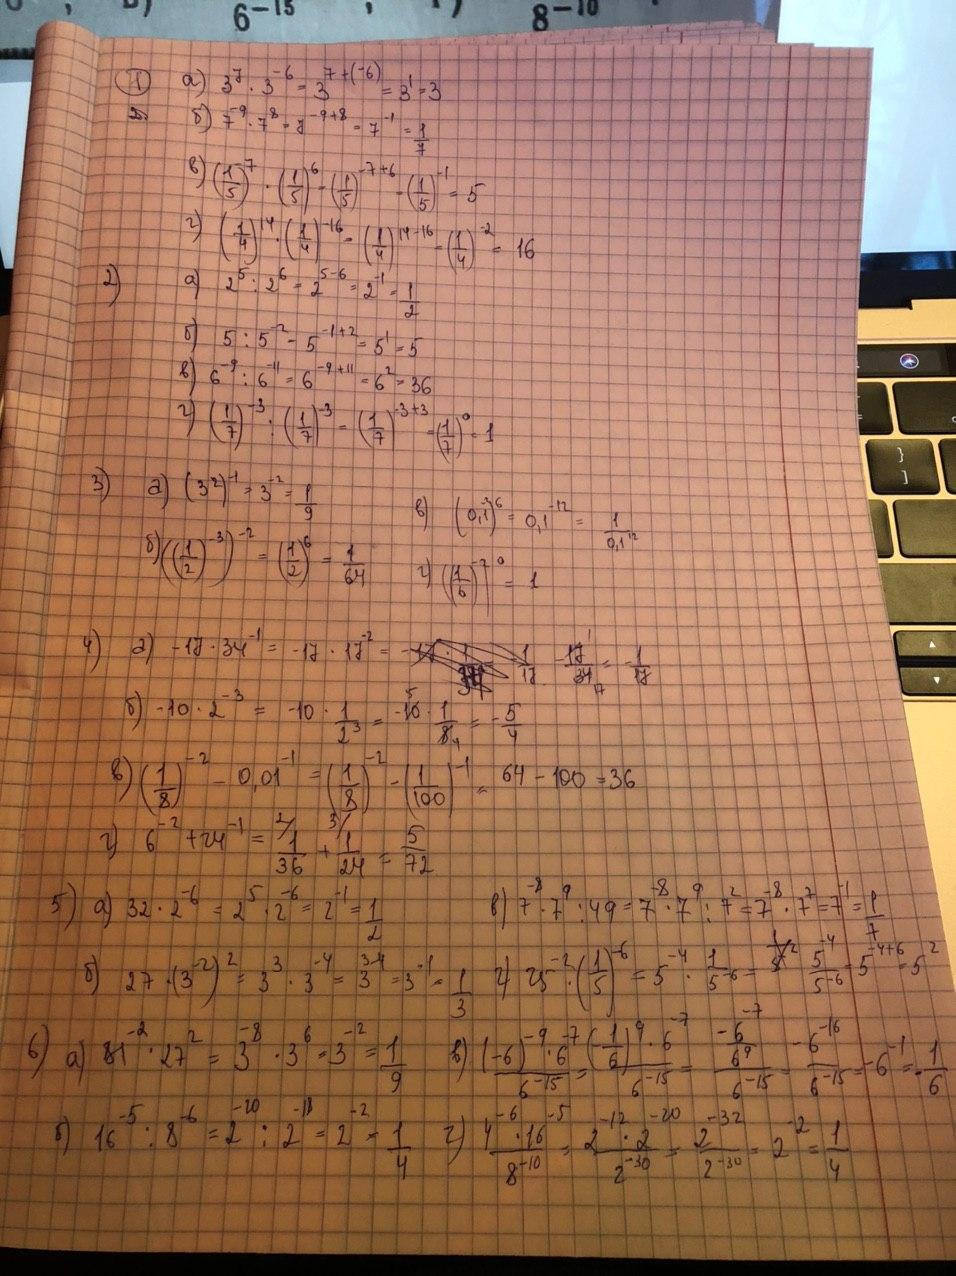 6⁻¹⁵ ; 8⁻¹⁰
① а) 3⁷ · 3⁻⁶ = 3⁷⁺⁽⁻⁶⁾ = 3¹ = 3
б) 7⁻⁹ · 7⁸ = 7⁻⁹⁺⁸ = 7⁻¹ = 1/7
в) (1/5)⁻⁷ · (1/5)⁶ = (1/5)⁻⁷⁺⁶ = (1/5)⁻¹ = 5
г) (1/4)¹⁴ · (1/4)⁻¹⁶ = (1/4)¹⁴⁻¹⁶ = (1/4)⁻² = 16
2) а) 2⁵ : 2⁶ = 2⁵⁻⁶ = 2⁻¹ = 1/2
б) 5 : 5⁻² = 5⁻¹⁺² = 5¹ = 5
в) 6⁻⁹ : 6⁻¹¹ = 6⁻⁹⁺¹¹ = 6² = 36
г) (1/7)⁻³ : (1/7)⁻³ = (1/7)⁻³⁺³ = (1/7)⁰ = 1
3) а) (3²)⁻¹ = 3⁻² = 1/9
в) (0,1⁻²)⁶ = 0,1⁻¹² = 1/0,1¹²
б) ((1/2)⁻³)⁻² = (1/2)⁶ = 1/64
г) ((1/6)⁻⁷)⁰ = 1
4) а) -17 · 34⁻¹ = -17 · 17⁻² = -17/34 = -1/17
б) -10 · 2⁻³ = -10 · 1/2³ = -10 · 1/8 = -5/4
в) (1/8)⁻² - 0,01⁻¹ = (1/8)⁻² - (1/100)⁻¹ = 64 - 100 = 36
г) 6⁻² + 24⁻¹ = 1/36 + 1/24 = 5/72
5) а) 32 · 2⁻⁶ = 2⁵ · 2⁻⁶ = 2⁻¹ = 1/2
в) 7⁻⁸ · 7⁹ : 49 = 7⁻⁸ · 7⁹ : 7² = 7⁻⁸ · 7⁷ = 7⁻¹ = 1/7
б) 27 · (3⁻²)² = 3³ · 3⁻⁴ = 3³⁻⁴ = 3⁻¹ = 1/3
г) 25⁻² · (1/5)⁻⁶ = 5⁻⁴ · 1/5⁻⁶ = 5⁻⁴/5⁻⁶ = 5⁻⁴⁺⁶ = 5²
6) а) 81⁻² · 27² = 3⁻⁸ · 3⁶ = 3⁻² = 1/9
в) (-6)⁻⁹ · 6⁻⁷/6⁻¹⁵ = (-1/6)⁹ · 6⁻⁷/6⁻¹⁵ = -6⁻⁷/6⁹/6⁻¹⁵ = -6⁻¹⁶/6⁻¹⁵ = -6⁻¹ = -1/6
б) 16⁻⁵ : 8⁻⁶ = 2⁻²⁰ : 2⁻¹⁸ = 2⁻² = 1/4
г) 4⁻⁶ · 16⁻⁵/8⁻¹⁰ = 2⁻¹² · 2⁻²⁰/2⁻³⁰ = 2⁻³²/2⁻³⁰ = 2⁻² = 1/4